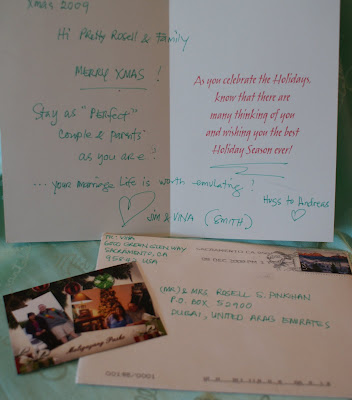 Xmas 2009
Hi Pretty Rosell & Family
MERRY XMAS !
Stay as "Perfect"
Couple & parents
as you are!
... your Marriage Life is worth emulating!
JIM & VINA (SMITH)
As you celebrate the Holidays,
know that there are
many thinking of you
and wishing you the best
Holiday Season ever!
Hugs to Andreas
SACRAMENTO, CA
95
USA
SACRAMENTO CA
DEC 2009 PM
(MR) & MRS ROSELL S. PINKHAN
P.O. BOX 52900
DUBAI, UNITED ARAB EMIRATES
Maligayang Pasko